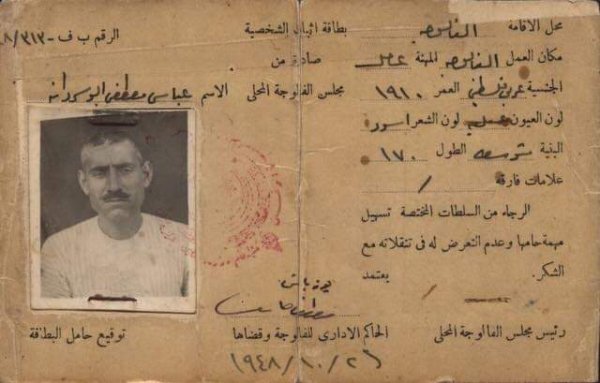 بطاقة اثبات الشخصية
الرقم ب ف - ٨/٣١٣
صادرة من
مجلس الفالوجة المحلي
الاسم عباس مصطفى ابو
توقيع حامل البطاقة
محل الاقامة الفلوجه
مكان العمل الفلوجه المهنة عامل
الجنسية عربي فلسطيني العمر ١٩١٠
لون العيون عسلي لون الشعر اسود
البنية متوسطه الطول ١٧٠
علامات فارقة /
الرجاء من السلطات المختصة تسهيل
مهمة حاملها وعدم التعرض له في تنقلاته مع
الشكر.
يعتمد
رئيس مجلس الفالوجة المحلي
يوزباشي
الحاكم الاداري للفالوجة وقضاها